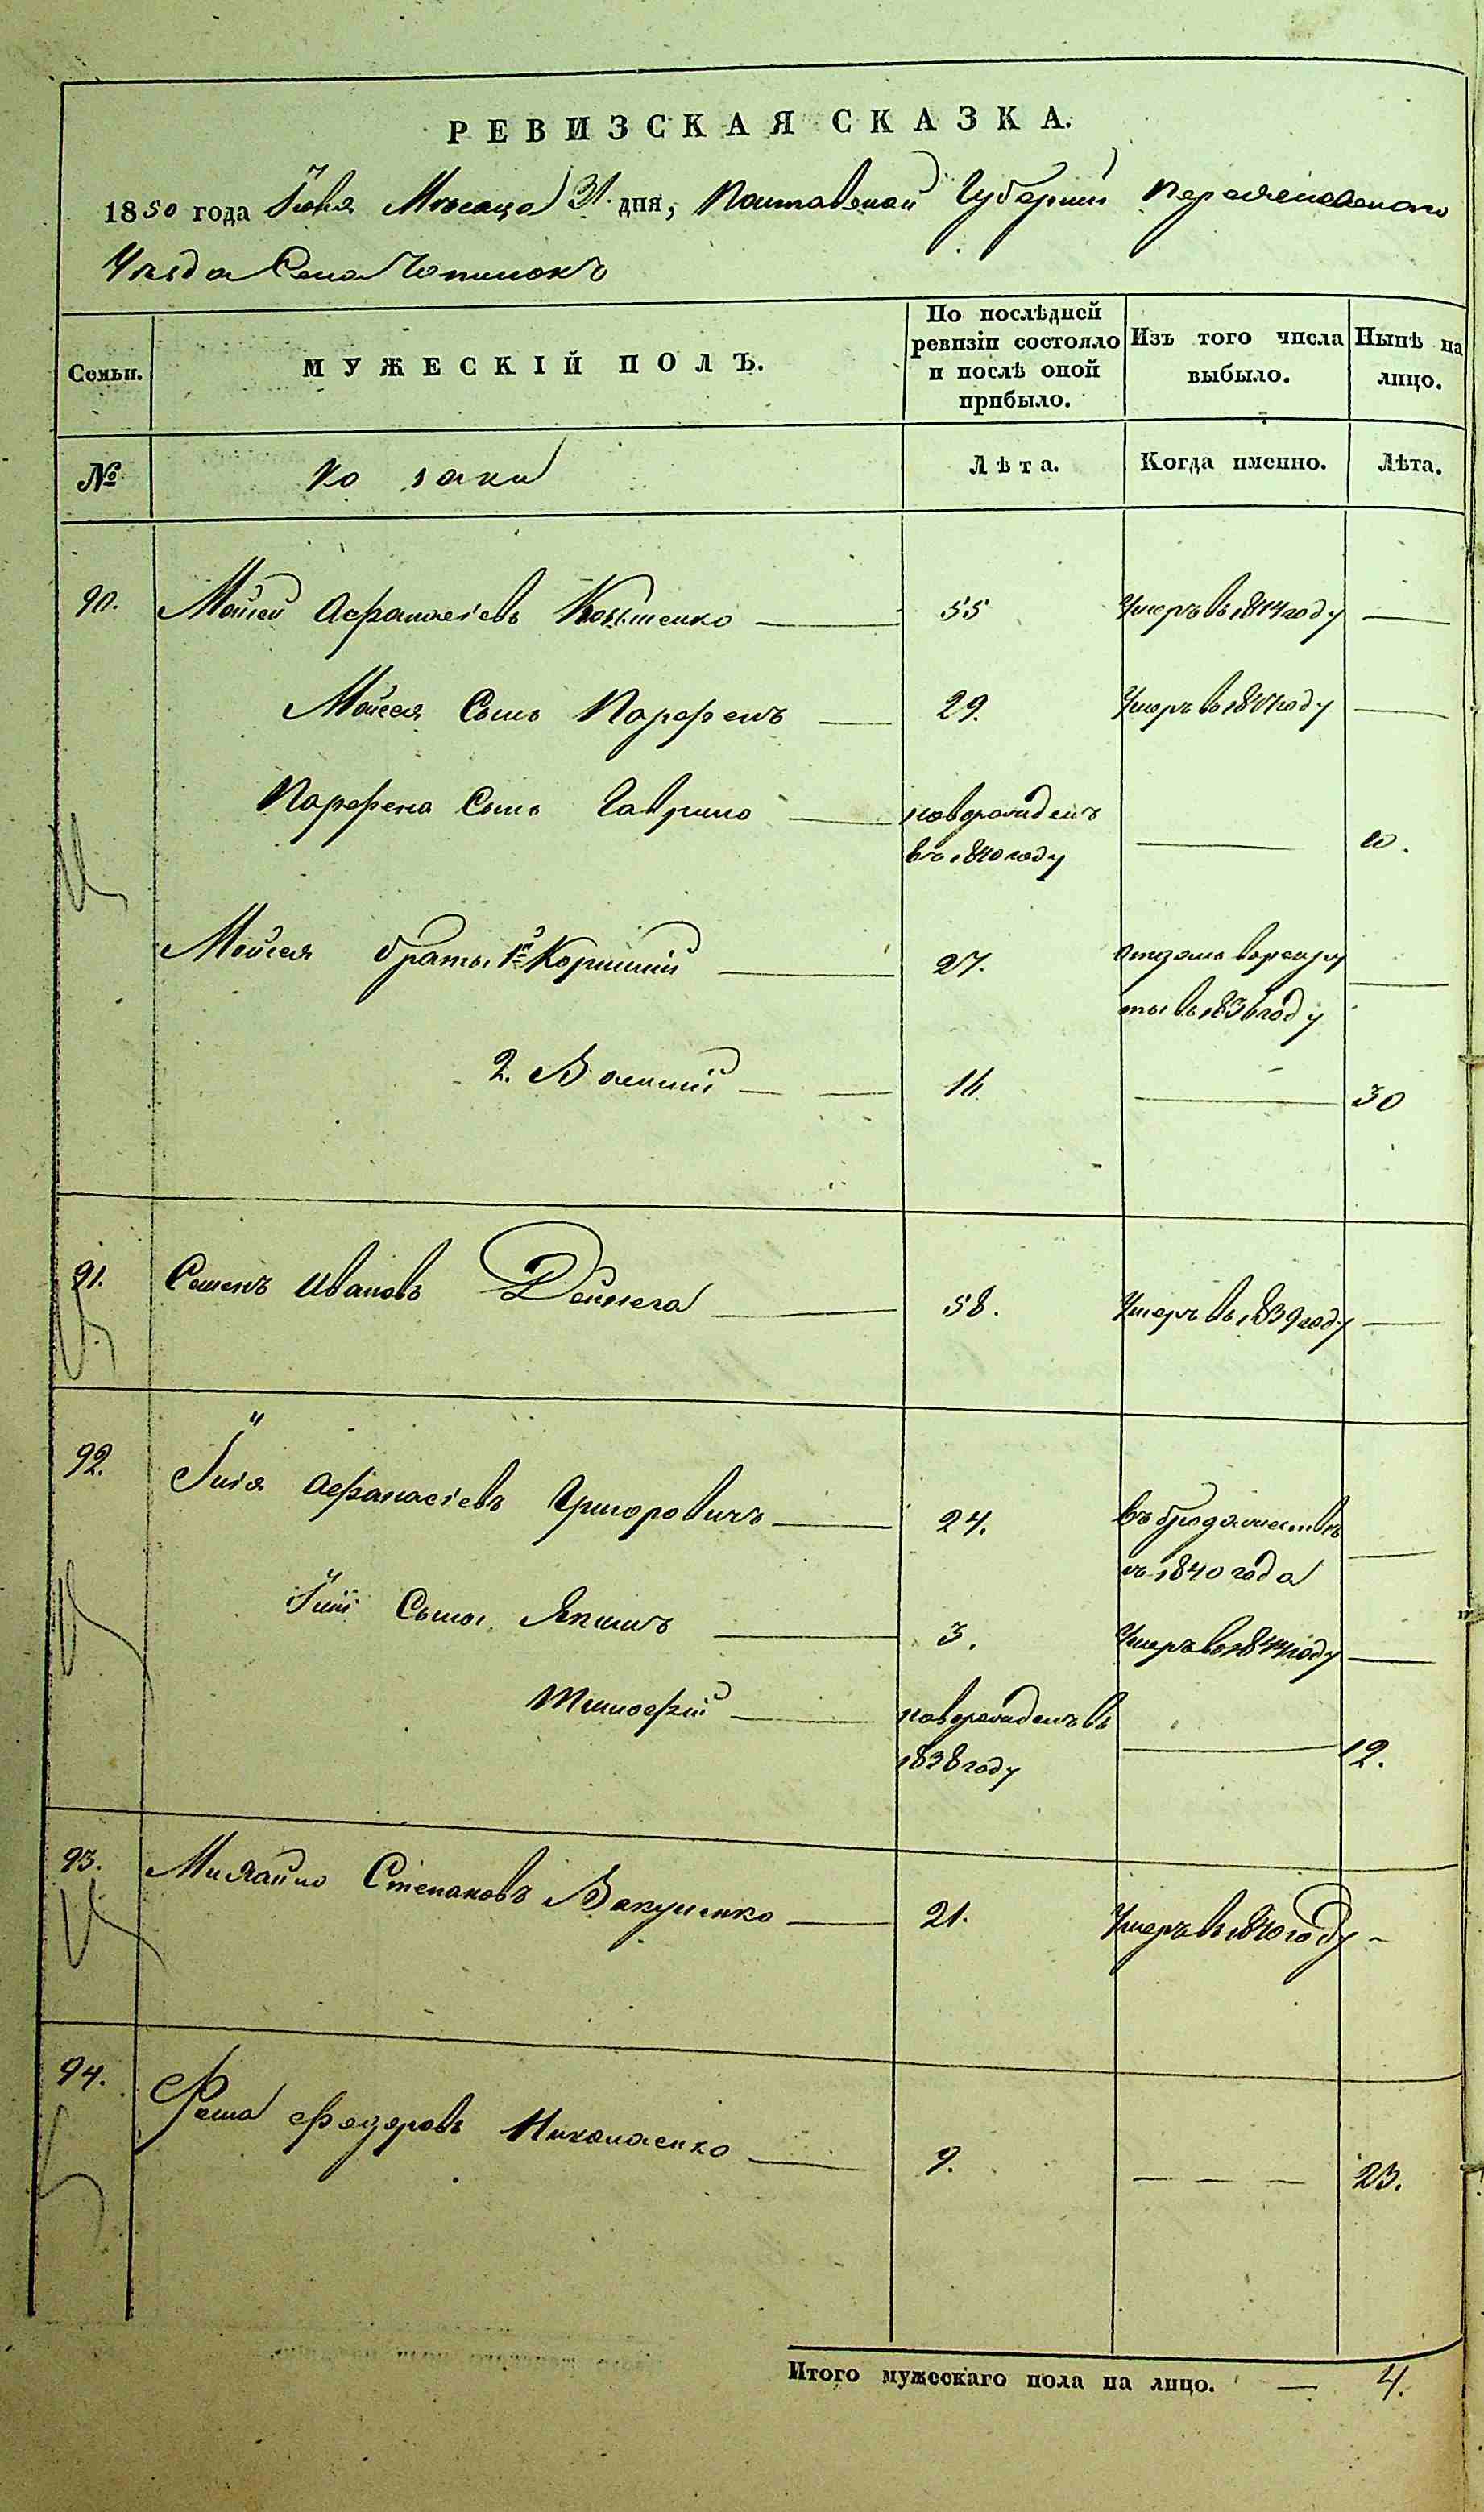 РЕВИЗСКАЯ СКАЗКА.
1850 года Іюля Мѣсяца 31. дня, Полтавской Губерніи Переяславскаго
Уѣзда Села Чопилокъ
Семьи.
МУЖЕСКІЙ ПОЛЪ.
По послѣдней ревизіи состояло и послѣ оной прибыло.
Изъ того числа выбыло.
Нынѣ на лицо.
№
Козаки
Лѣта.
Когда именно.
Лѣта.
90. Мойсей Афанасіевъ 55 Умеръ въ году —
Мойсея Сынъ Парфенъ — 29. Умеръ въ году —
Парфена Сынъ Гаврило — новорожденъ
въ 1840 году — 10.
Мойсея братья 1й Корнилій — 27. отданъ врекру
ты въ 1836 году —
2. Василій — 14 — 30
91. Семенъ Ивановъ Дейнега — 58. Умеръ въ 1839 году —
92. Илія Афанасіевъ Григоровичъ — 24. въ бродяжествѣ
съ 1840 года —
Иліи Сыны, Якимъ — 3. Умеръ въ 1844 году —
Тимофѣй — новорожденъ въ
1838 году — 12.
93. Михайло Степановъ Вакуленко — 21. Умеръ въ 1840 году -
94. Фома Федоровъ Николаенко — 9. — — — 23.
Итого мужескаго пола на лицо. — 4.